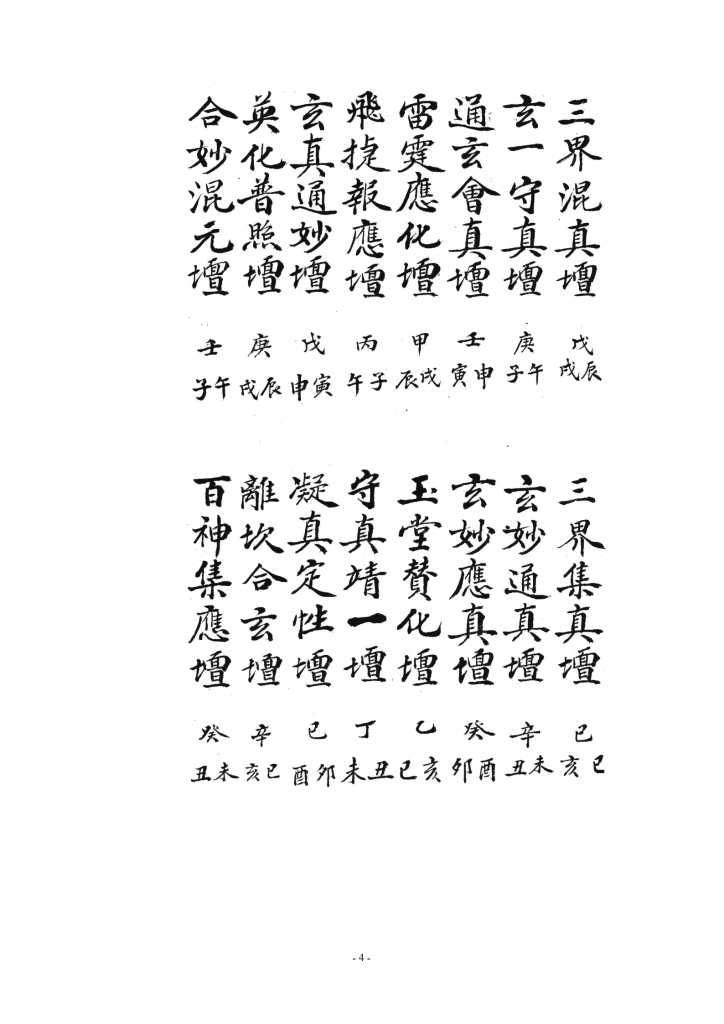 三界混真壇
戊
戌辰
玄一守真壇
庚
子午
通玄會真壇
壬
寅申
雷霆應化壇
甲
辰戌
飛捷報應壇
丙
午子
玄真通妙壇
戊
申寅
英化普照壇
庚
戌辰
合妙混元壇
壬
子午
三界集真壇
己
亥巳
玄妙通真壇
辛
丑未
玄妙應真壇
癸
卯酉
玉堂賛化壇
乙
巳亥
守真靖一壇
丁
未丑
凝真定性壇
己
酉卯
離坎合玄壇
辛
亥巳
百神集應壇
癸
丑未
- 4 -